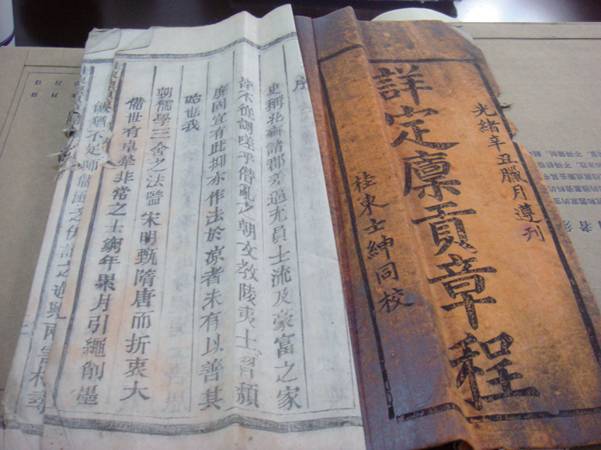 光緒辛丑臘月遵刊
詳定廩貢章程
桂東士紳同校
序
史稱北齊諸郡逼充員士流及豪富之家
不從調嗟乎僭亂之朝文教陵夷士習頹
廢固宜有此抑亦作法於凉者未有以善其
始也我
朝儒學三舍之法宋明甄隋唐而折衷大
備世有卓犖非常之士窮年累月引繩削墨